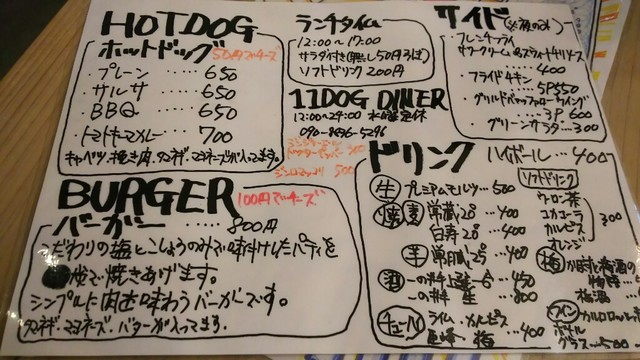 HOTDOG
ホットドッグ 50円でチーズ
・プレーン ····· 650
・サルサ ····· 650
・BBQ ····· 650
・トマトキーマカレー ···· 700
キャベツ、挽き肉、タマネギ、マヨネーズが入ってます。
BURGER 100円でチーズ
バーガー ····· 800円
こだわりの塩とこしょうのみで味付けしたパティを
焼きあげます。
シンプルに肉を味わうバーガーです。
タマネギ・マヨネーズ・バターが入ってます.
ランチタイム
12:00～17:00
サラダ付き
ソフトドリンク 200円
11DOG DINER
12:00~29:00 水曜定休
090-8696-5296
ジンジャーエール
ドクターペッパー
500
サイド
フレンチフライ
サワークリーム&スウィートチリソース
400
・フライドチキン
5P550
・グリルドバッファローウイング
3P 600
・グリーンサラダ ···300
ドリンク
ハイボール ··· 400
生 プレミアムモルツ ··· 500
ソフトドリンク
ウーロン茶
コカコーラ
カルピス
オレンジ
300
28° ··· 400
白寿 25° ··· 400
25° ··· 400
酒 450
800
チューハイ ライム・カルピス
巨峰・梅 ··· 400
梅
梅酒
ワイン カルロロッシ
ボトル
グラス ··· 500